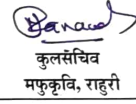 कुलसंचिव
मफुकृवि, राहुरी